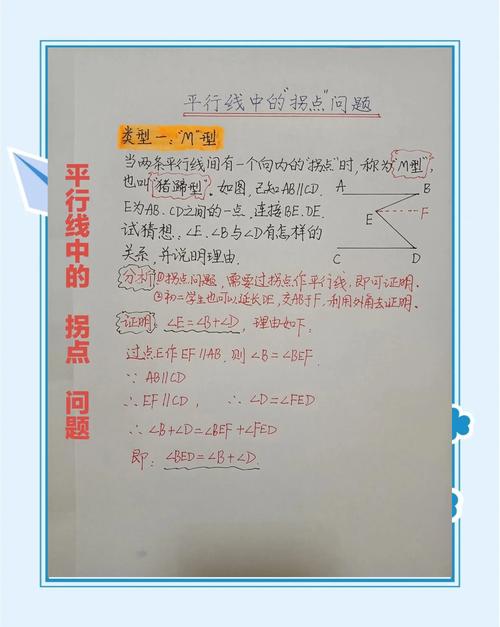 平行线中的 拐点 问题
平行线中的"拐点"问题
类型一:"M"型
当两条平行线间有一个向内的"拐点"时,称为"M型",
也叫"猪蹄型".如图,已知AB∥CD.
E为AB、CD之间的一点,连接BE、DE.
试猜想:∠E、∠B与∠D有怎样的
关系,并说明理由.
A B
E F
C D
分析:①拐点问题,需要过拐点作平行线,即可证明.
②初二学生也可以延长DE,交AB于F,利用外角去证明.
证明:∠E=∠B+∠D,理由如下:
过点E作EF∥AB.则∠B=∠BEF.
∵ AB∥CD
∴ EF∥CD, ∴ ∠D=∠FED
∴ ∠B+∠D=∠BEF+∠FED
即:∠BED=∠B+∠D.